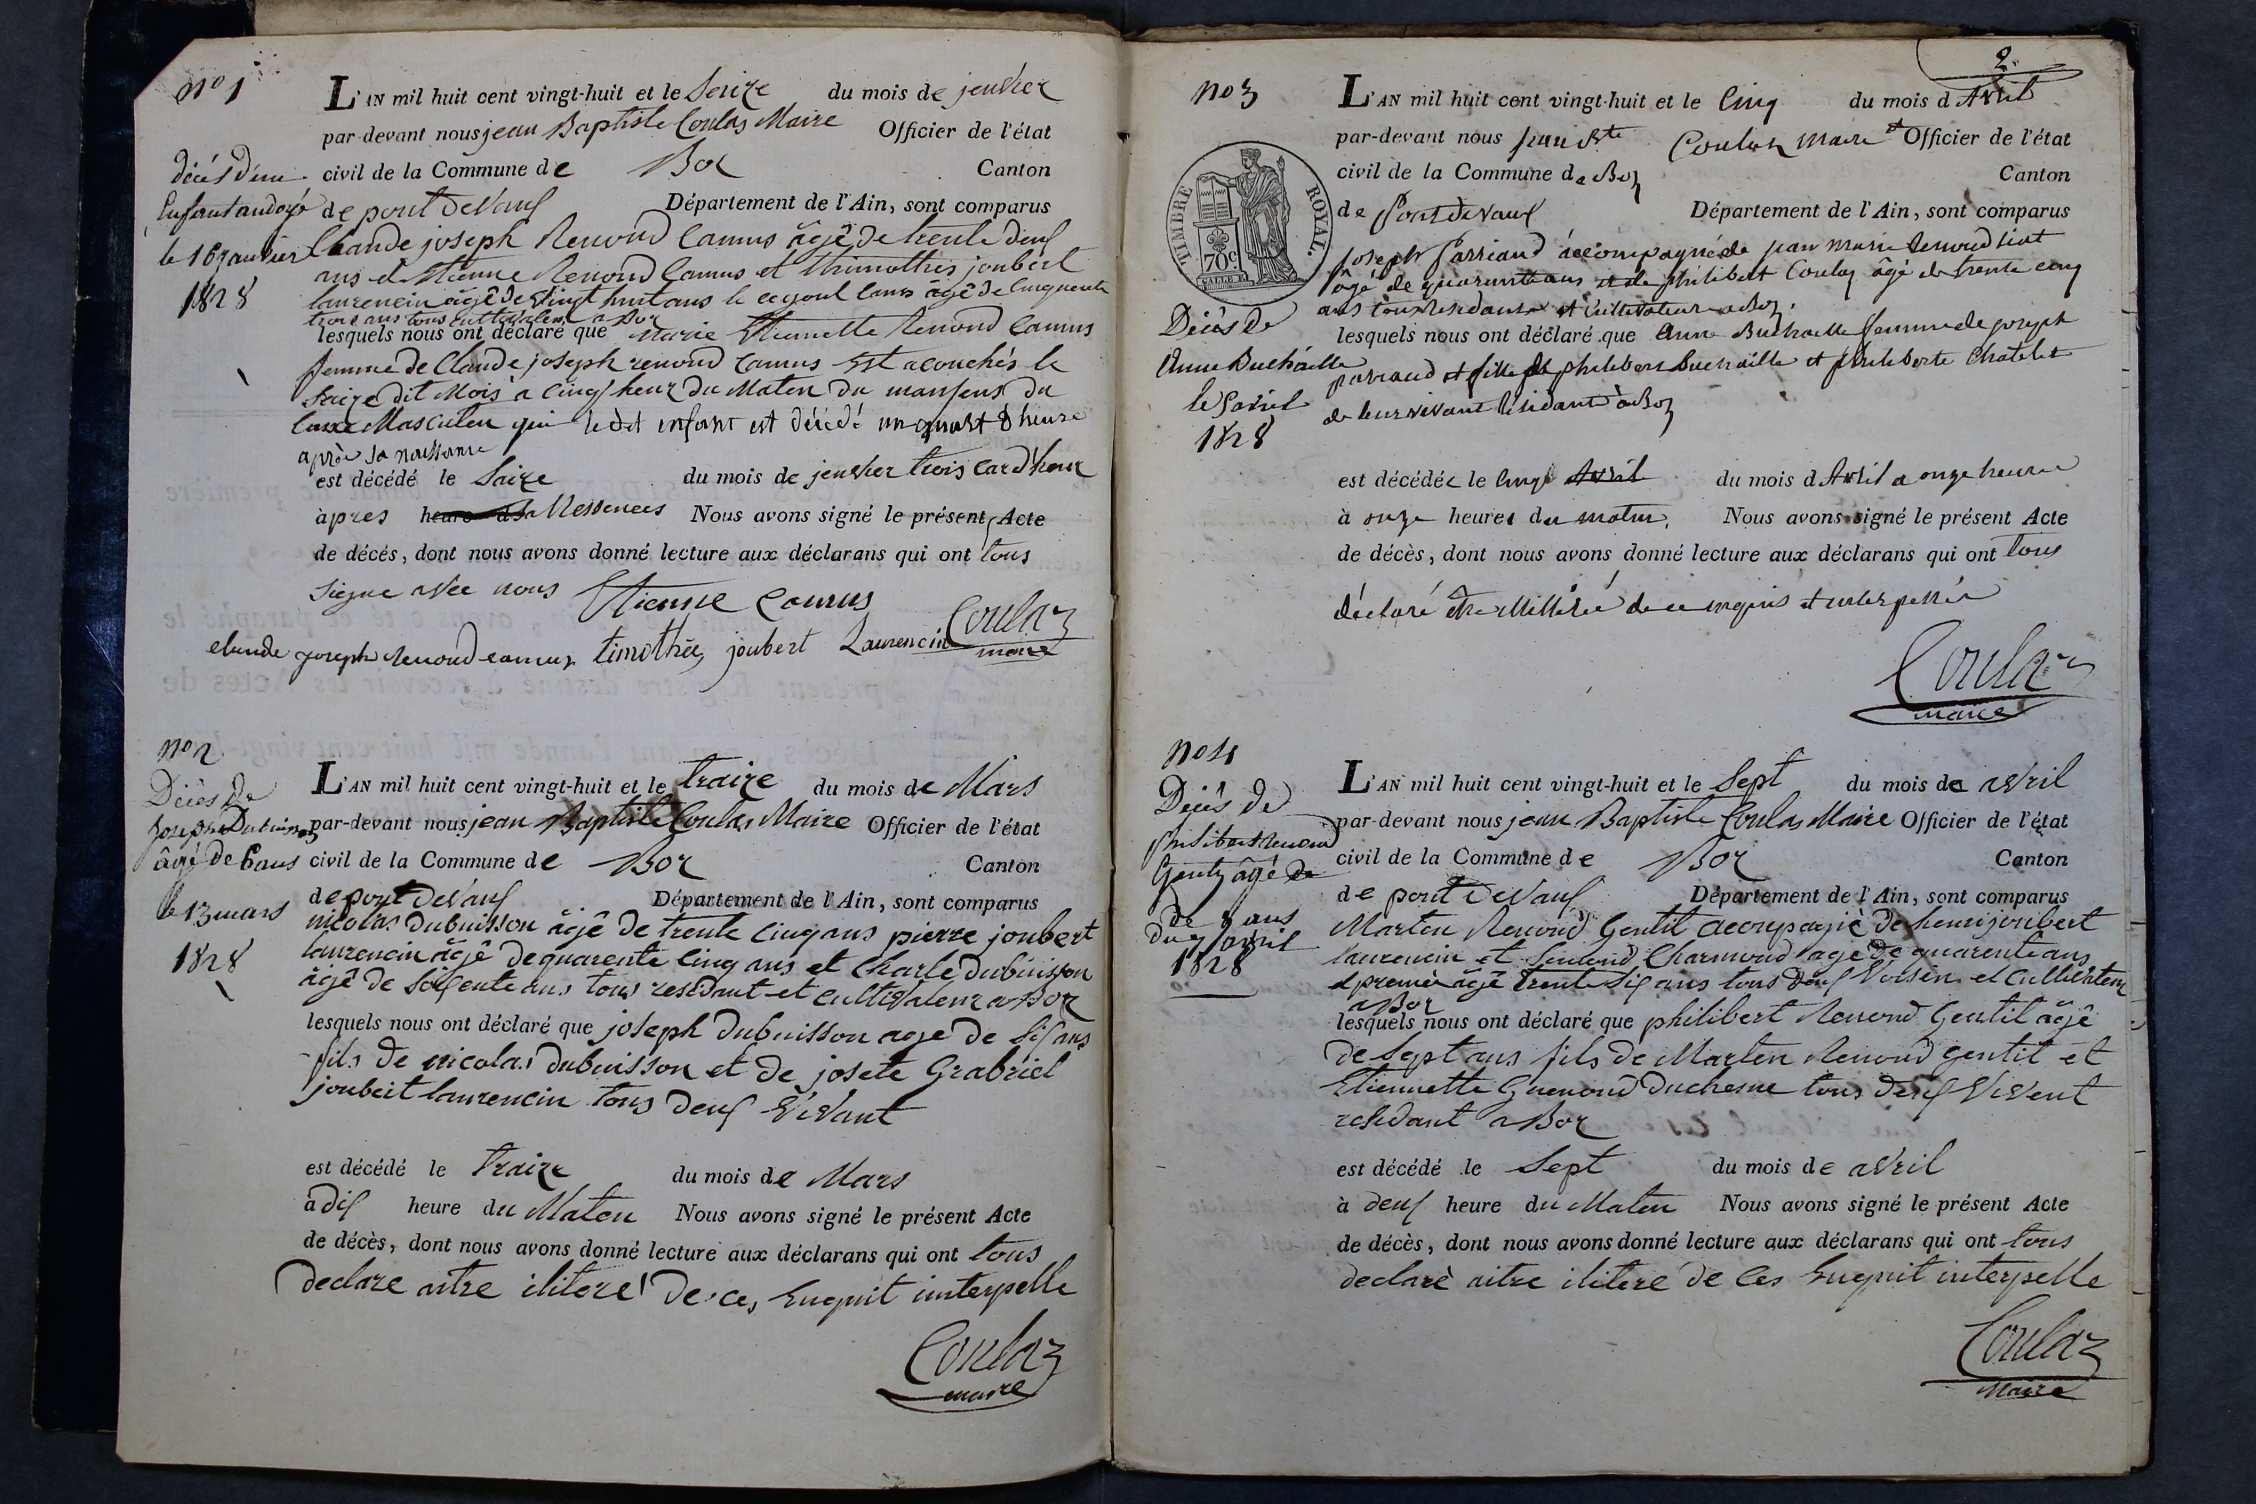 nº 1
décès d'un
Enfant andoyé
le 16 janvier
1828
L'AN mil huit cent vingt-huit et le Seize du mois de jenvier
par-devant nous jean Baptiste Coulas Maire Officier de l'état
civil de la Commune de Boz Canton
de pont deVaux Département de l'Ain, sont comparus
Claude joseph Renoud Camus âgê de trente deux
ans et Etienne Renoud Camus et thimothés joubert
laurencin âgê de Vingt huit ans le segont Camus âgê de Cinquente
trois ans tous Cultivateur a Boz
lesquels nous ont déclaré que Marie Etiennette Renoud Camus
femme de Claude joseph renoud Camus Est acouchés le
Saize dit Mois à Cinq heur du Maten du
Masculen que le dit enfant est décédé un quart d'heure
après sa naissance
est décédé le Saize du mois de jenvier trois card'heur
àpres heure d sa Nessences Nous avons signé le présent Acte
de décés, dont nous avons donné lecture aux déclarans qui ont tous
signe avec nous Etienne Camus
claude joseph Renoud camus timothée joubert Laurencin Coulaz
maire
nº 2
Décès de
Joseph Dubuisson
âgé de 6 ans
le 13 mars
1828
L'AN mil huit cent vingt-huit et le traize du mois de Mars
par-devant nous jean Baptiste Coulas Maire Officier de l'état
civil de la Commune de Boz Canton
de pont deVaux Département de l'Ain, sont comparus
nicolas dubuisson âgê de trente Cinq ans pierre joubert
laurencin âgê de quarente Cinq ans et Charle dubuisson
âgê de Soixente ans tous residant et cultivateur a Boz
lesquels nous ont déclaré que joseph dubuisson age de Six ans
fils de nicolas dubuisson et de josete Grabriel
joubert laurencin tous deux ViVant
est décédé le traize du mois de Mars
à dix heure du Maten Nous avons signé le présent Acte
de décès, dont nous avons donné lecture aux déclarans qui ont tous
declare aitre ilitere de ces Enquit interpelle
Coulaz
maire
2.
nº 3
TIMBRE ROYAL.
70c
Décès de
Anne Buchaille
le 5 avril
1828
L'AN mil huit cent vingt-huit et le Cinq du mois d'Avril
par-devant nous jean Bte Coulaz maire et Officier de l'état
civil de la Commune de Boz Canton
de Pont de vaux Département de l'Ain, sont comparus
joseph Parriaud accompagné de jean marie Renoud
âgé de quarante ans et de philibert Coulaz âgé de trente cinq
ans tous Residants et Cultivateur a Boz.
lesquels nous ont déclaré que Anne Buchaille femme de joseph
parriaud et fille de philibert Buchaille et philiberte Chatelet
de leur vivant Résidant à Boz
est décédée le cinq Avril du mois d'Avril a onze heure
à onze heures du matin. Nous avons signé le présent Acte
de décès, dont nous avons donné lecture aux déclarans qui ont tous
déclaré être illitéré de ce enquis et interpellé
Coulaz
maire
nº 4
Décês de
philibert renoud
Gentil âgé de
de 7 ans
du 7 avril
1828
L'AN mil huit cent vingt-huit et le Sept du mois de avril
par-devant nous jean Baptiste Coulas Maire Officier de l'état
civil de la Commune de Boz Canton
de pont deVaux Département de l'Ain, sont comparus
Marten Renoud Gentil acompagné de henri joubert
laurencin et Charmoud age de quarente ans
premiè âgê trente Six ans tous deux Voisin et Cultivateur
a Boz
lesquels nous ont déclaré que philibert Renoud Gentil âgê
de Sept ans fils de Marten Renoud gentil et
Etiennette Guenoud Duchesne tous deux Vivent
residant a Boz
est décédé le Sept du mois de avril
à deux heure du Maten Nous avons signé le présent Acte
de décès, dont nous avons donné lecture aux déclarans qui ont tous
declarè aitre ilitere de Ces Enquit interpelle
Coulaz
Maire